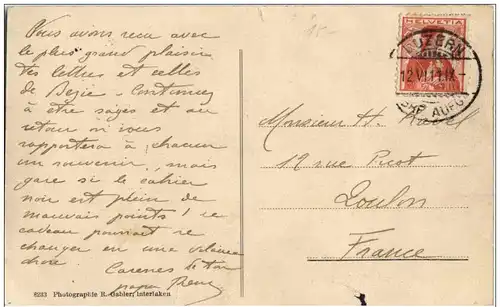 Nous avons reçu avec
le plus grand plaisir
tes lettres et celles
de Continuez
à être sages et au
retour si vous
rapportera à chacun
un souvenir, mais
gare si le cahier
noir est plein de
mauvais points! le
cadeau pourrait se
changer en une vilaine
chose.
Caresses de ton
papa
8233 Photographie R. Gabler, Interlaken
HELVETIA
LUZERN
12.VI.11.IX-
AUFG.
Monsieur H.
12 rue
Toulon
France